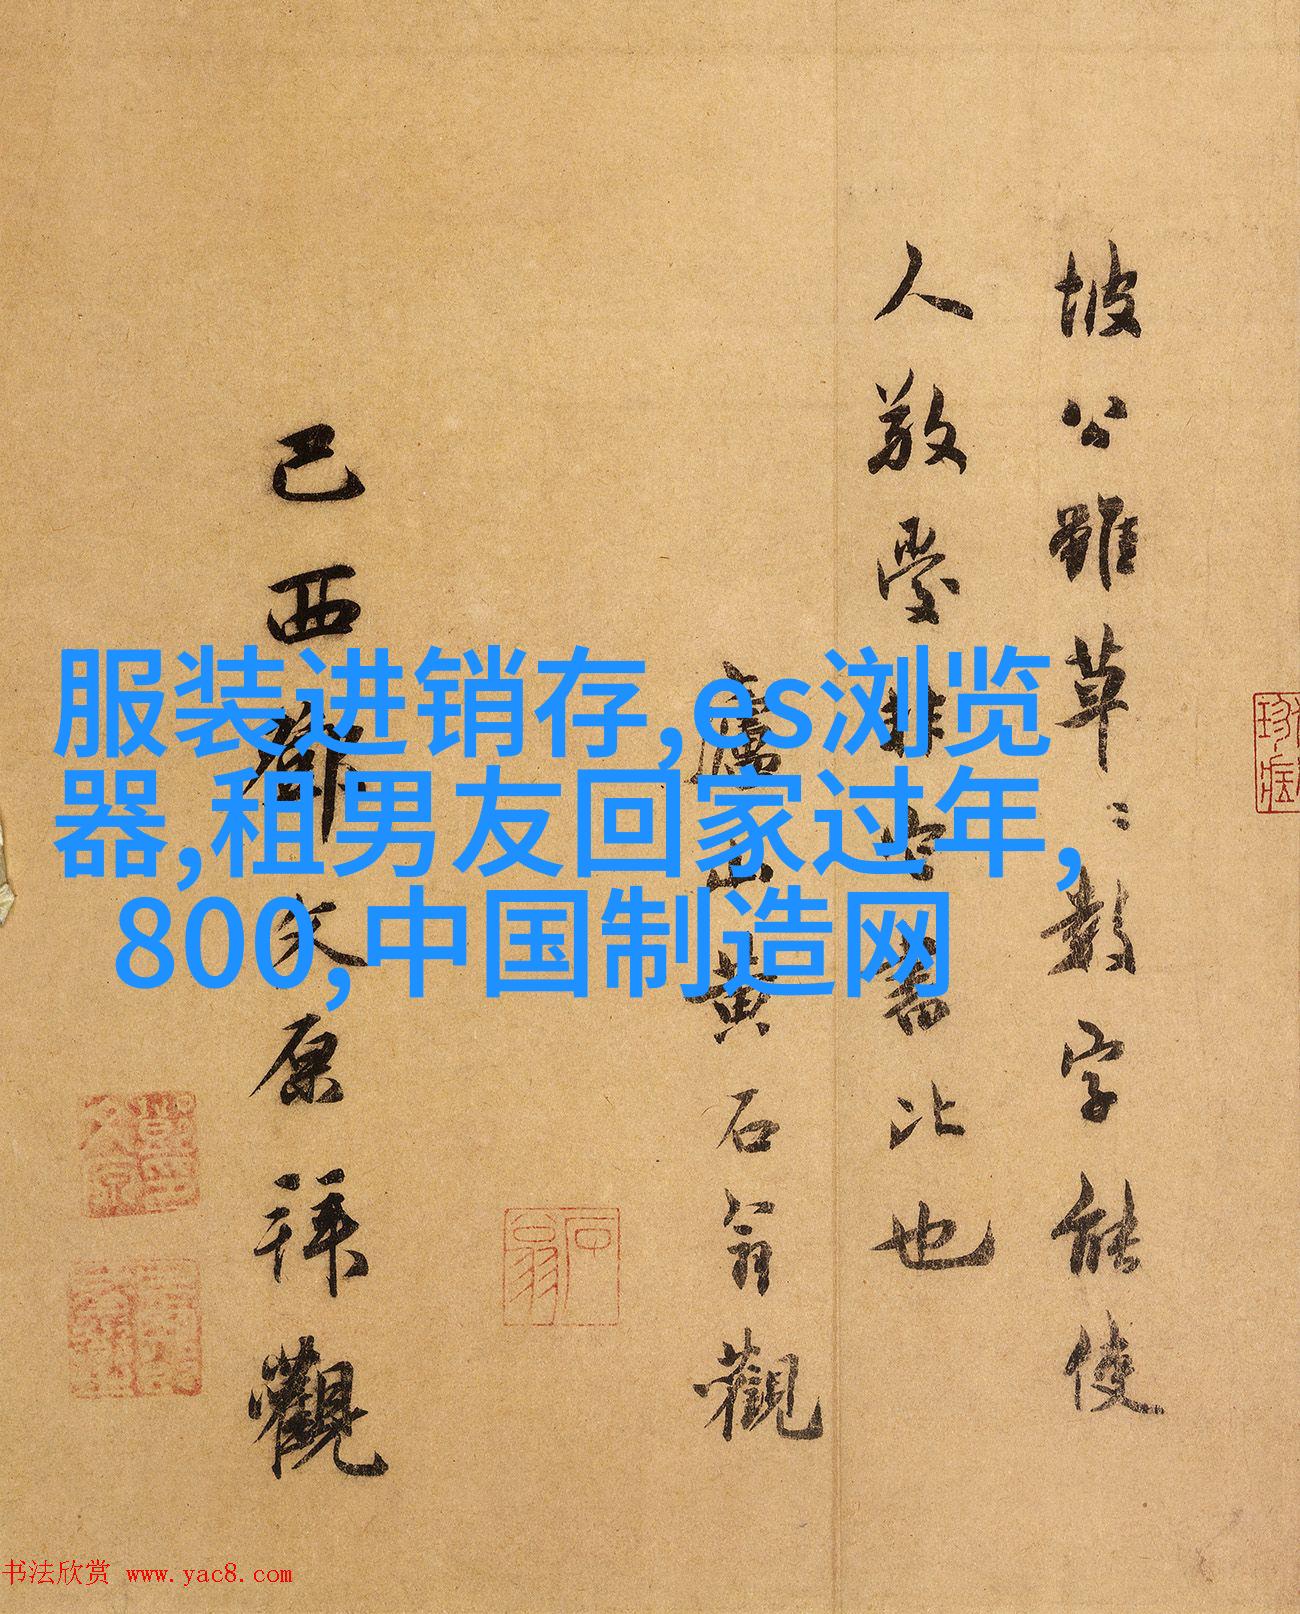 坡公雖草草數字能使
人敬愛非他書比也
廬山黄石翁觀
己酉鄧文原拜觀
服装进销存,es浏览
器,租男友回家过年,
800,中国制造网
石翁
书法欣赏 www.yac8.com